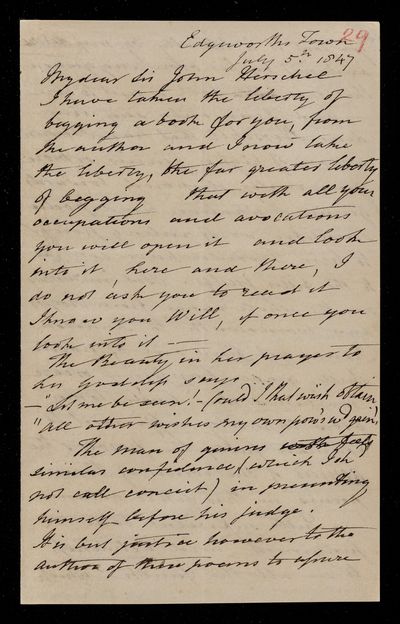 Edgeworths Town 29
July 5th 1847
My dear Sir John Herschel
I have taken the liberty of
begging a book for you, from
the author and I now take
the liberty, the far greater liberty
of begging that with all your
occupations and avocations
you will open it and look
into it, here and there, I
do not ask you to read it
I know you Will, if once you
look into it —
The Beauty in her prayer to
his says
— "Let me be seen! — Could I that wish obtain
"All other wishes my own pow'r wd gain"
The man of genius feels
similar confidence (which I do
not call conceit) in presenting
himself before his judge.
It is but justice however to the
author of these poems to assure